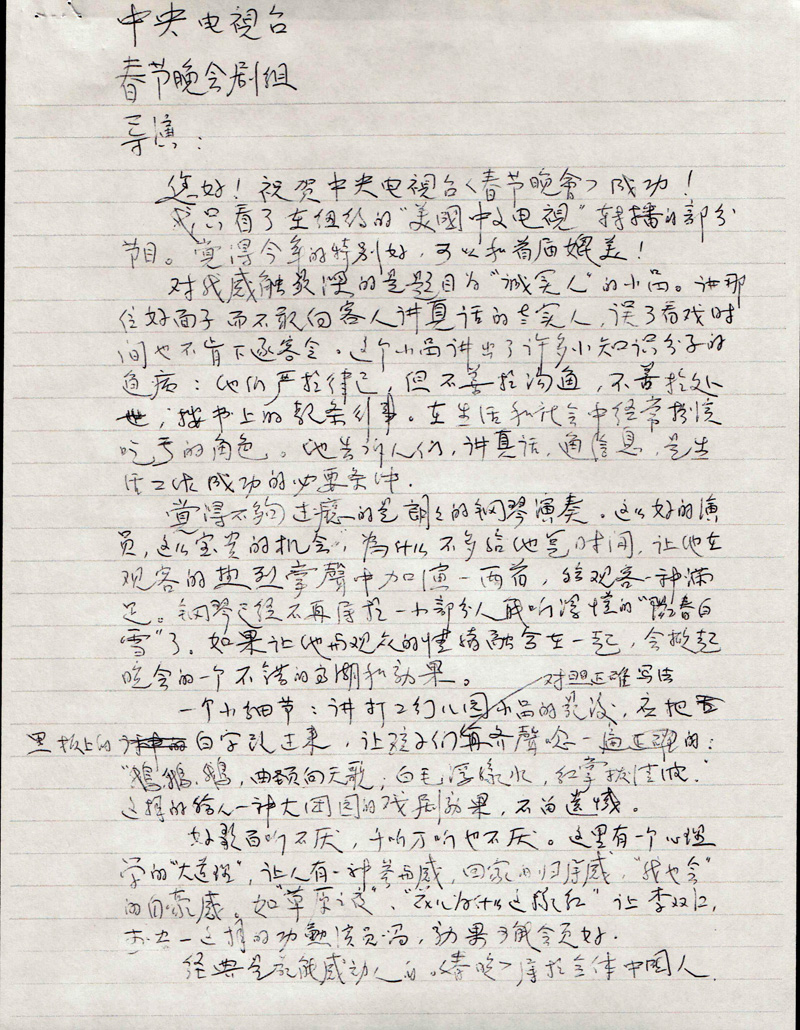 中央电視台
春节晚会剧组
导演：
您好！祝贺中央电視台<春节晚會>成功！
我只看了在纽约的"美國中文电視"转播的部分
节目。觉得今年的特别好，可以和首届媲美！
对我感触最深的是题目为"诚实人"的小品。讲那
位好面子而不敢向客人讲真话的老实人，误了看戏时
间也不肯下逐客令。这个小品讲出了许多小知识分子的
通病：他们严於律己，但不善於沟通，不善於处
世，按书上的教条行事。在生活和社会中经常扮演
吃亏的角色。他告诉人们，讲真话，通信息，是生
活工作成功的必要条件.
觉得不夠过瘾的是朗朗的钢琴演奏。这么好的演
员，这么宝贵的机会，为什么不多给他些时间，让他在
观客的热烈掌聲中加演一两首，给观客一种满
足。钢琴已经不再屬於一小部分人能听得懂的"陽春白
雪"了。如果让他与观众的情绪融合在一起，会掀起
晚会的一个不错的高潮和効果。
一个小细节：讲打工幼儿园小品的最后，应把
对照正確写法
黑板上的白字改过来，让孩子们再齐聲唸一遍正確的：
"鵝鵝鵝，曲颈向天歌；白毛浮绿水，红掌拨清波."
这样的给人一种大团圆的戏剧効果，不留遗憾。
好歌百听不厌，千听万听也不厌。这里有一个心理
学的"大道理"，让人有一种参与感，回家的归属感，"我也会"
的自豪感。如"草原之夜"、"花儿为什么这样红"让李双江，
这样的功勳演员唱，効果可能会更好.
经典是最能感动人的。<春晚>属於全体中國人.